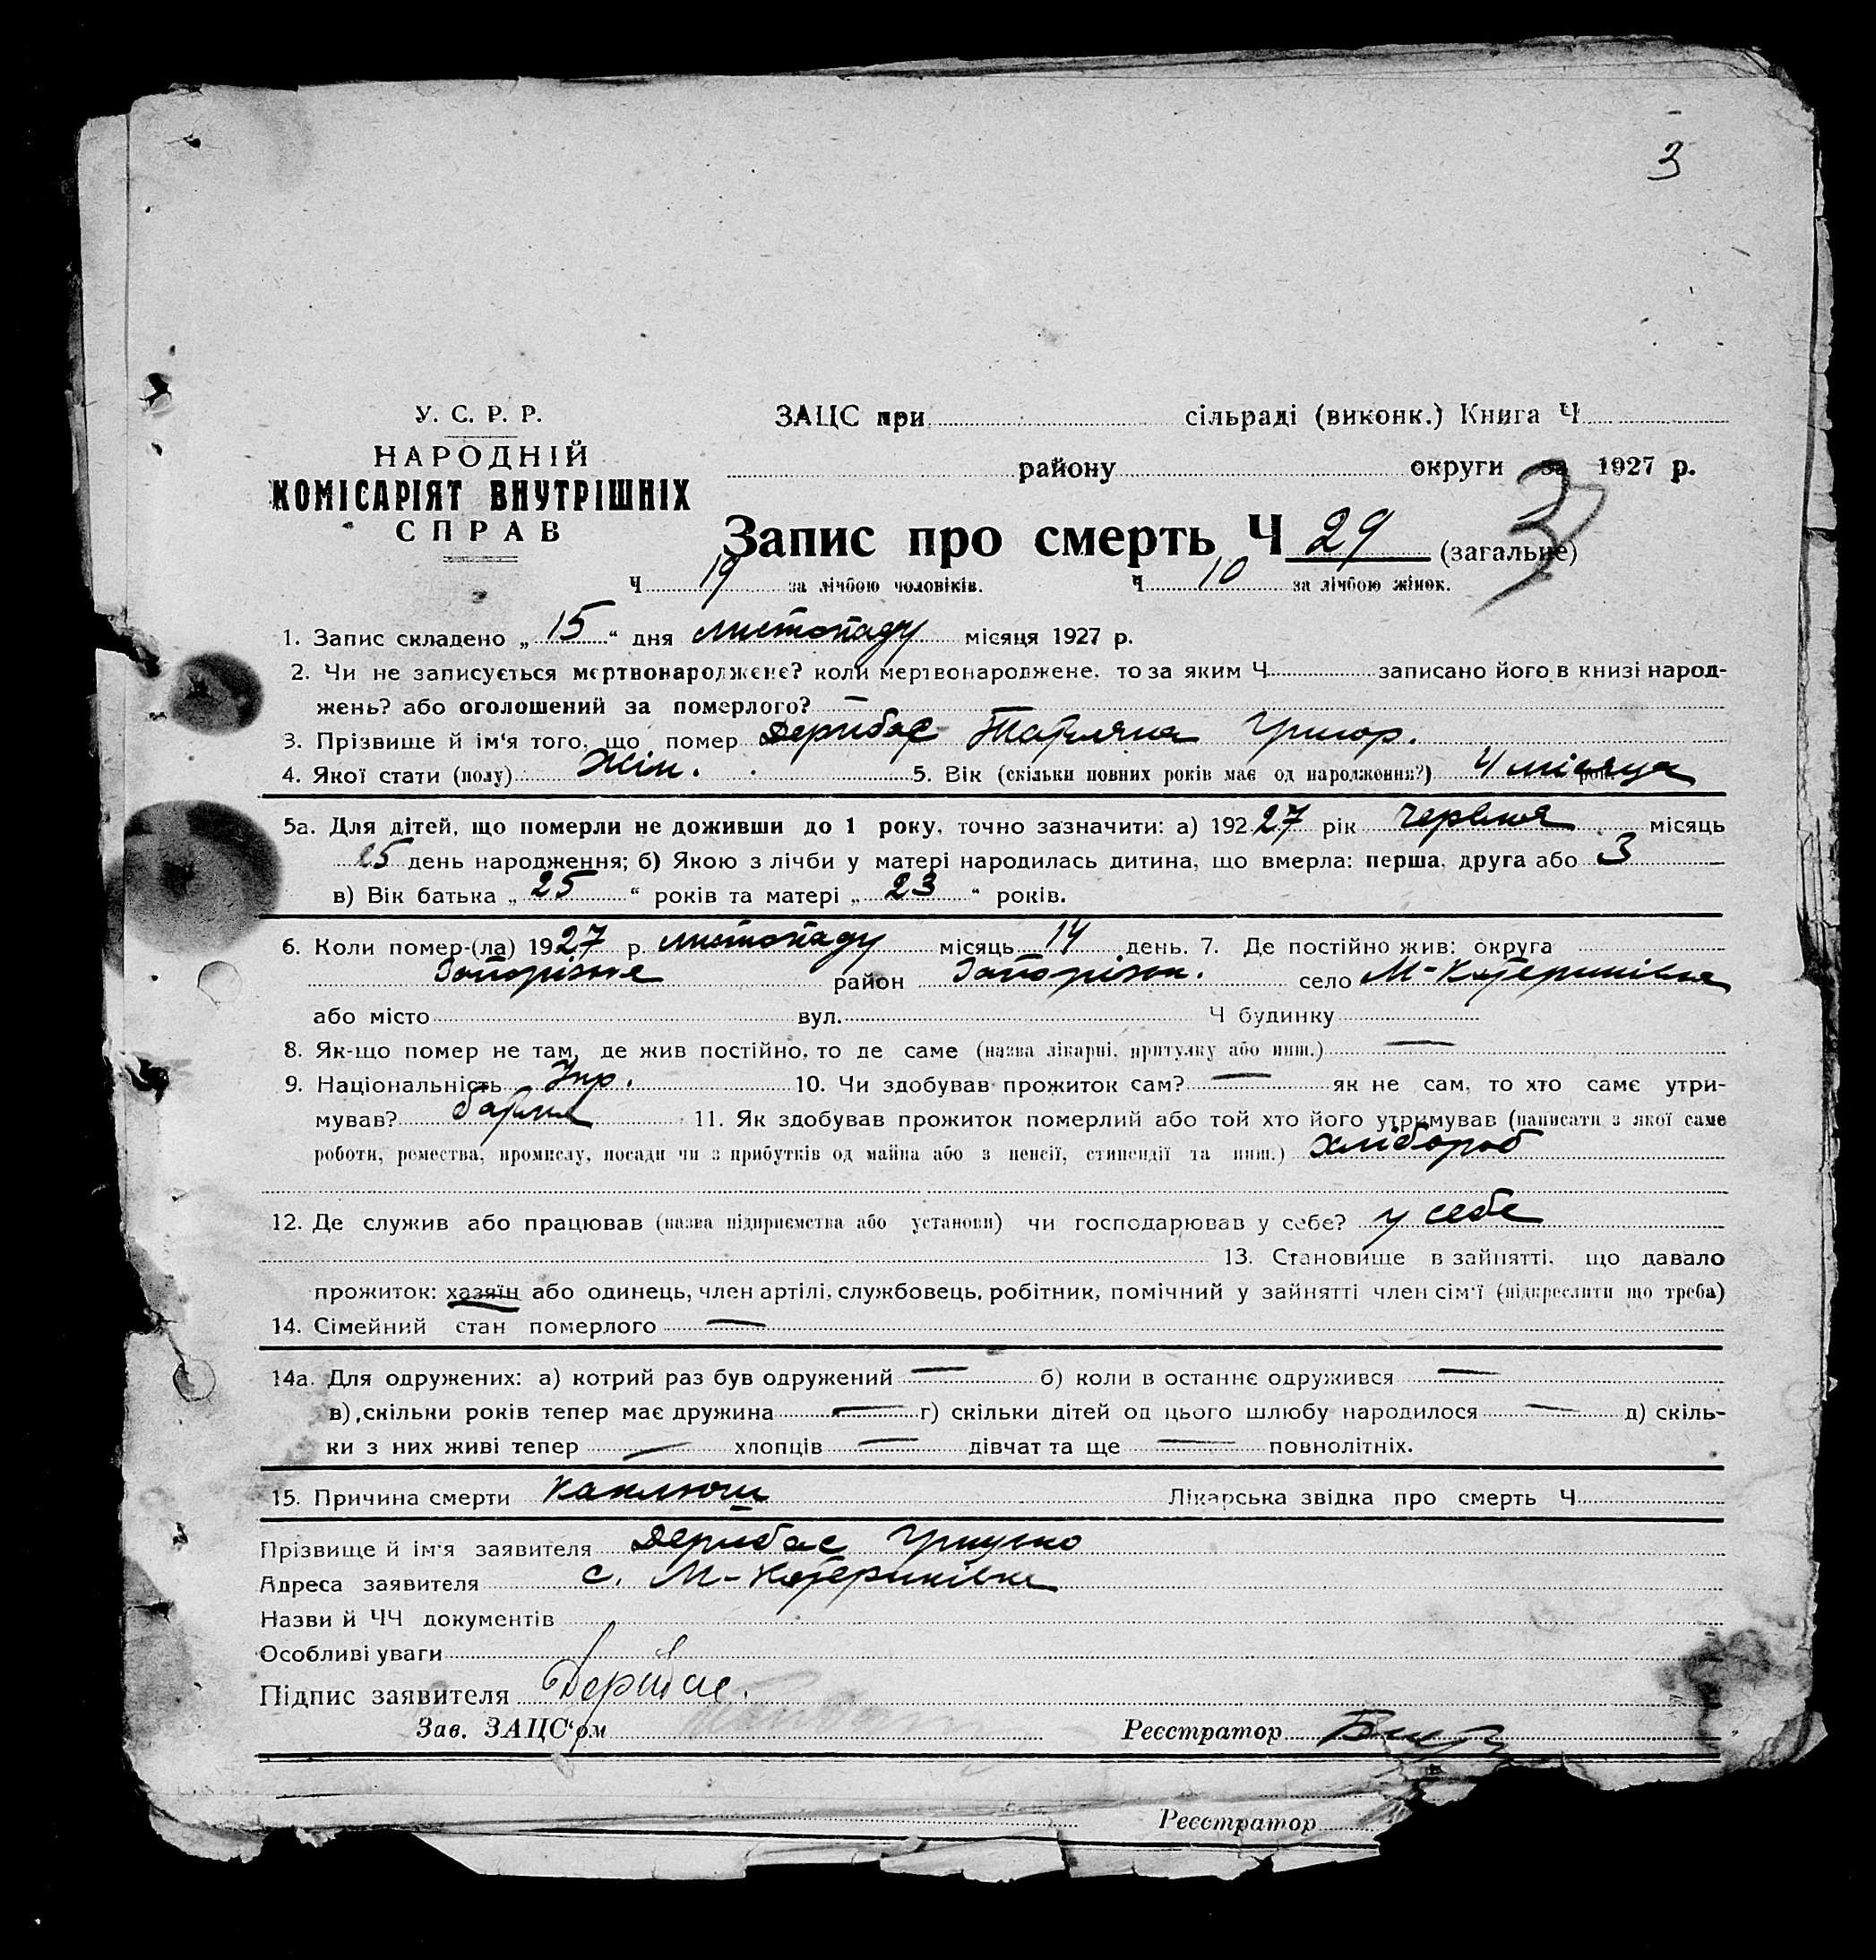 3
У. С. Р. Р.
НАРОДНІЙ
КОМІСАРІЯТ ВНУТРІШНІХ
СПРАВ
ЗАЦС при сільраді (виконк.) Книга Ч
району округи за 1927 р.
Запис про смерть Ч 29 (загальне)
Ч 19 за лічбою чоловіків. Ч 10 за лічбою жінок.
1. Запис складено „ 15 “ дня листопаду місяця 1927 р.
2. Чи не записується мертвонароджене? коли мертвонароджене, то за яким Ч записано його в книзі народ-
жень? або оголошений за померлого? —
3. Прізвище й ім'я того, що помер Дерибас Татьяна Григор.
4. Якої стати (полу) Жін. 5. Вік (скільки повних років має од народження?) 4 місяця
5а. Для дітей, що померли не доживши до 1 року, точно зазначити: а) 192 27 рік червня місяць
15 день народження; б) Якою з лічби у матері народилась дитина, що вмерла: перша, друга або 3
в) Вік батька „ 25 “ років та матері „ 23 “ років.
6. Коли помер-(ла) 1927 р. листопаду місяць 14 день. 7. Де постійно жив: округа
Запоріжжя район Запоріжж. село М-Катеринівка
або місто вул. Ч будинку
8. Як-що помер не там, де жив постійно, то де саме (назва лікарні, притулку або инш.) —
9. Національність Укр. 10. Чи здобував прожиток сам? — як не сам, то хто саме утри-
мував? батько 11. Як здобував прожиток померлий або той хто його утримував (написати з якої саме
роботи, ремества, промислу, посади чи з прибутків од майна або з пенсії, стипендії та инш.) хлібороб
12. Де служив або працював (назва підприємства або установи) чи господарював у себе? у себе
13. Становище в зайнятті, що давало
прожиток: хазяїн або одинець, член артілі, службовець, робітник, помічний у зайнятті член сім'ї (підкреслити що треба)
14. Сімейний стан померлого —
14а. Для одружених: а) котрий раз був одружений — б) коли в останнє одружився —
в) скільки років тепер має дружина — г) скільки дітей од цього шлюбу народилося — д) скіль-
ки з них живі тепер — хлопців — дівчат та ще — повнолітніх.
15. Причина смерти Каклюш Лікарська звідка про смерть Ч
Прізвище й ім'я заявителя Дерибас Грицько
Адреса заявителя с. М-Катеринівка
Назви й ЧЧ документів
Особливі уваги
Підпис заявителя Дерибас.
Зав. ЗАЦС'ом Реєстратор
Реєстратор